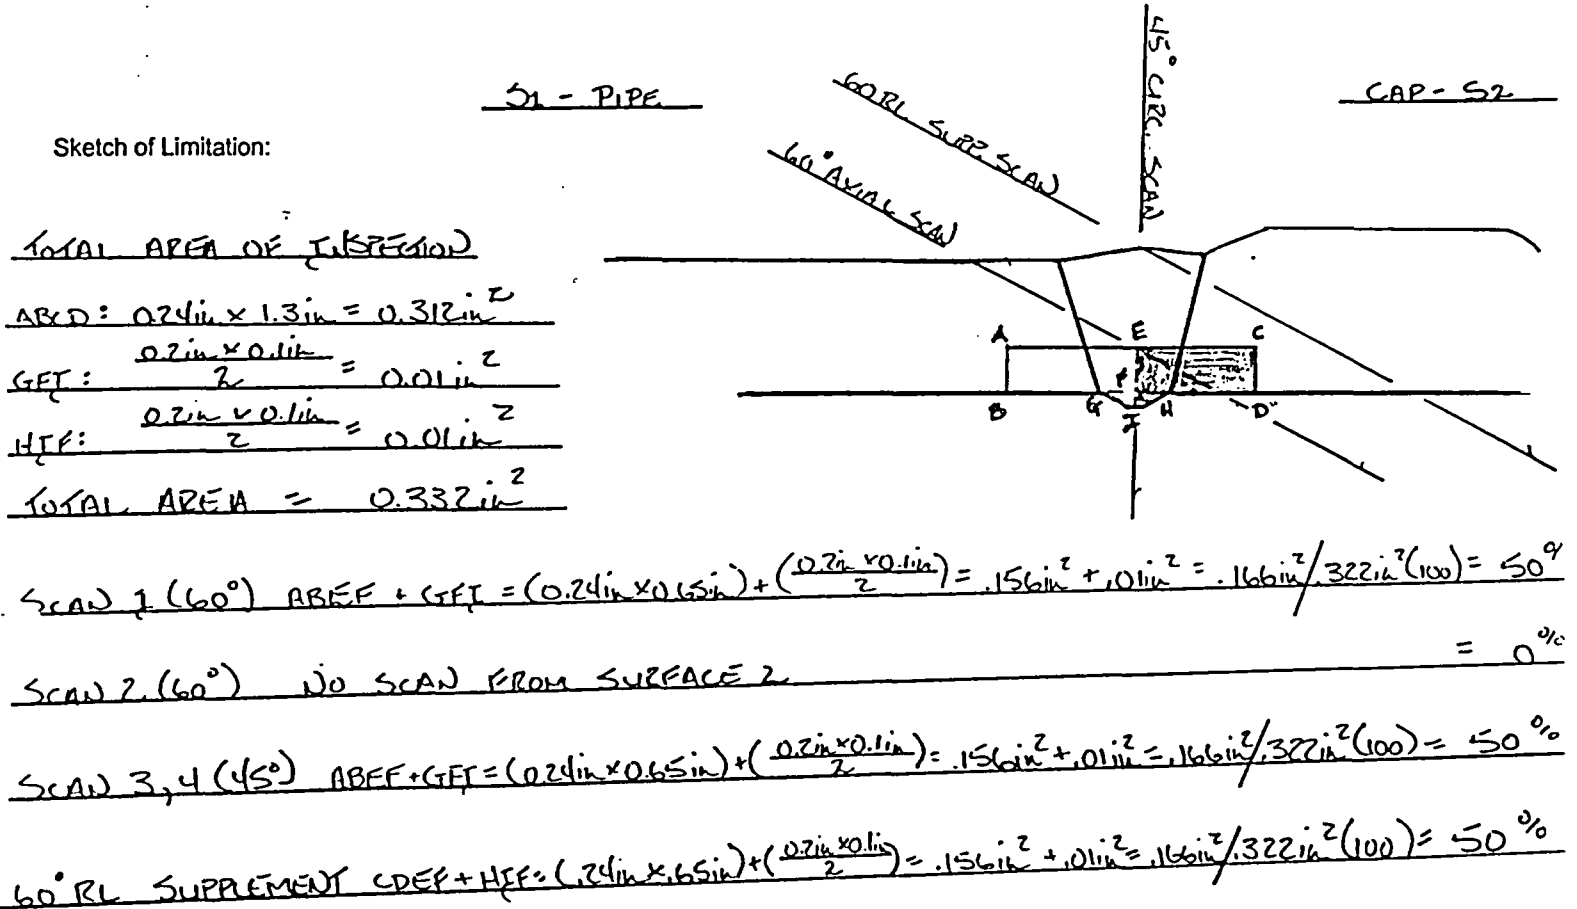 S1 - PIPE
CAP - S2
45° CIRC. SCAN
60 RL SUPP. SCAN
60° AXIAL SCAN
Sketch of Limitation:
TOTAL AREA OF INSPECTION
ABCD: 0.24in x 1.3in = 0.312in²
GFI: 0.2in x 0.1in / 2 = 0.01in²
HIF: 0.2in x 0.1in / 2 = 0.01in²
TOTAL AREA = 0.332in²
A E C
F
B G I H D
SCAN 1 (60°) ABEF + GFI = (0.24in x 0.65in) + (0.2in x 0.1in / 2) = .156in² + .01in² = .166in²/.322in² (100) = 50%
SCAN 2 (60°) NO SCAN FROM SURFACE 2 = 0%
SCAN 3, 4 (45°) ABEF + GFI = (0.24in x 0.65in) + (0.2in x 0.1in / 2) = .156in² + .01in² = .166in²/.322in² (100) = 50%
60° RL SUPPLEMENT CDEF + HIF = (.24in x .65in) + (0.2in x 0.1in / 2) = .156in² + .01in² = .166in²/.322in² (100) = 50%